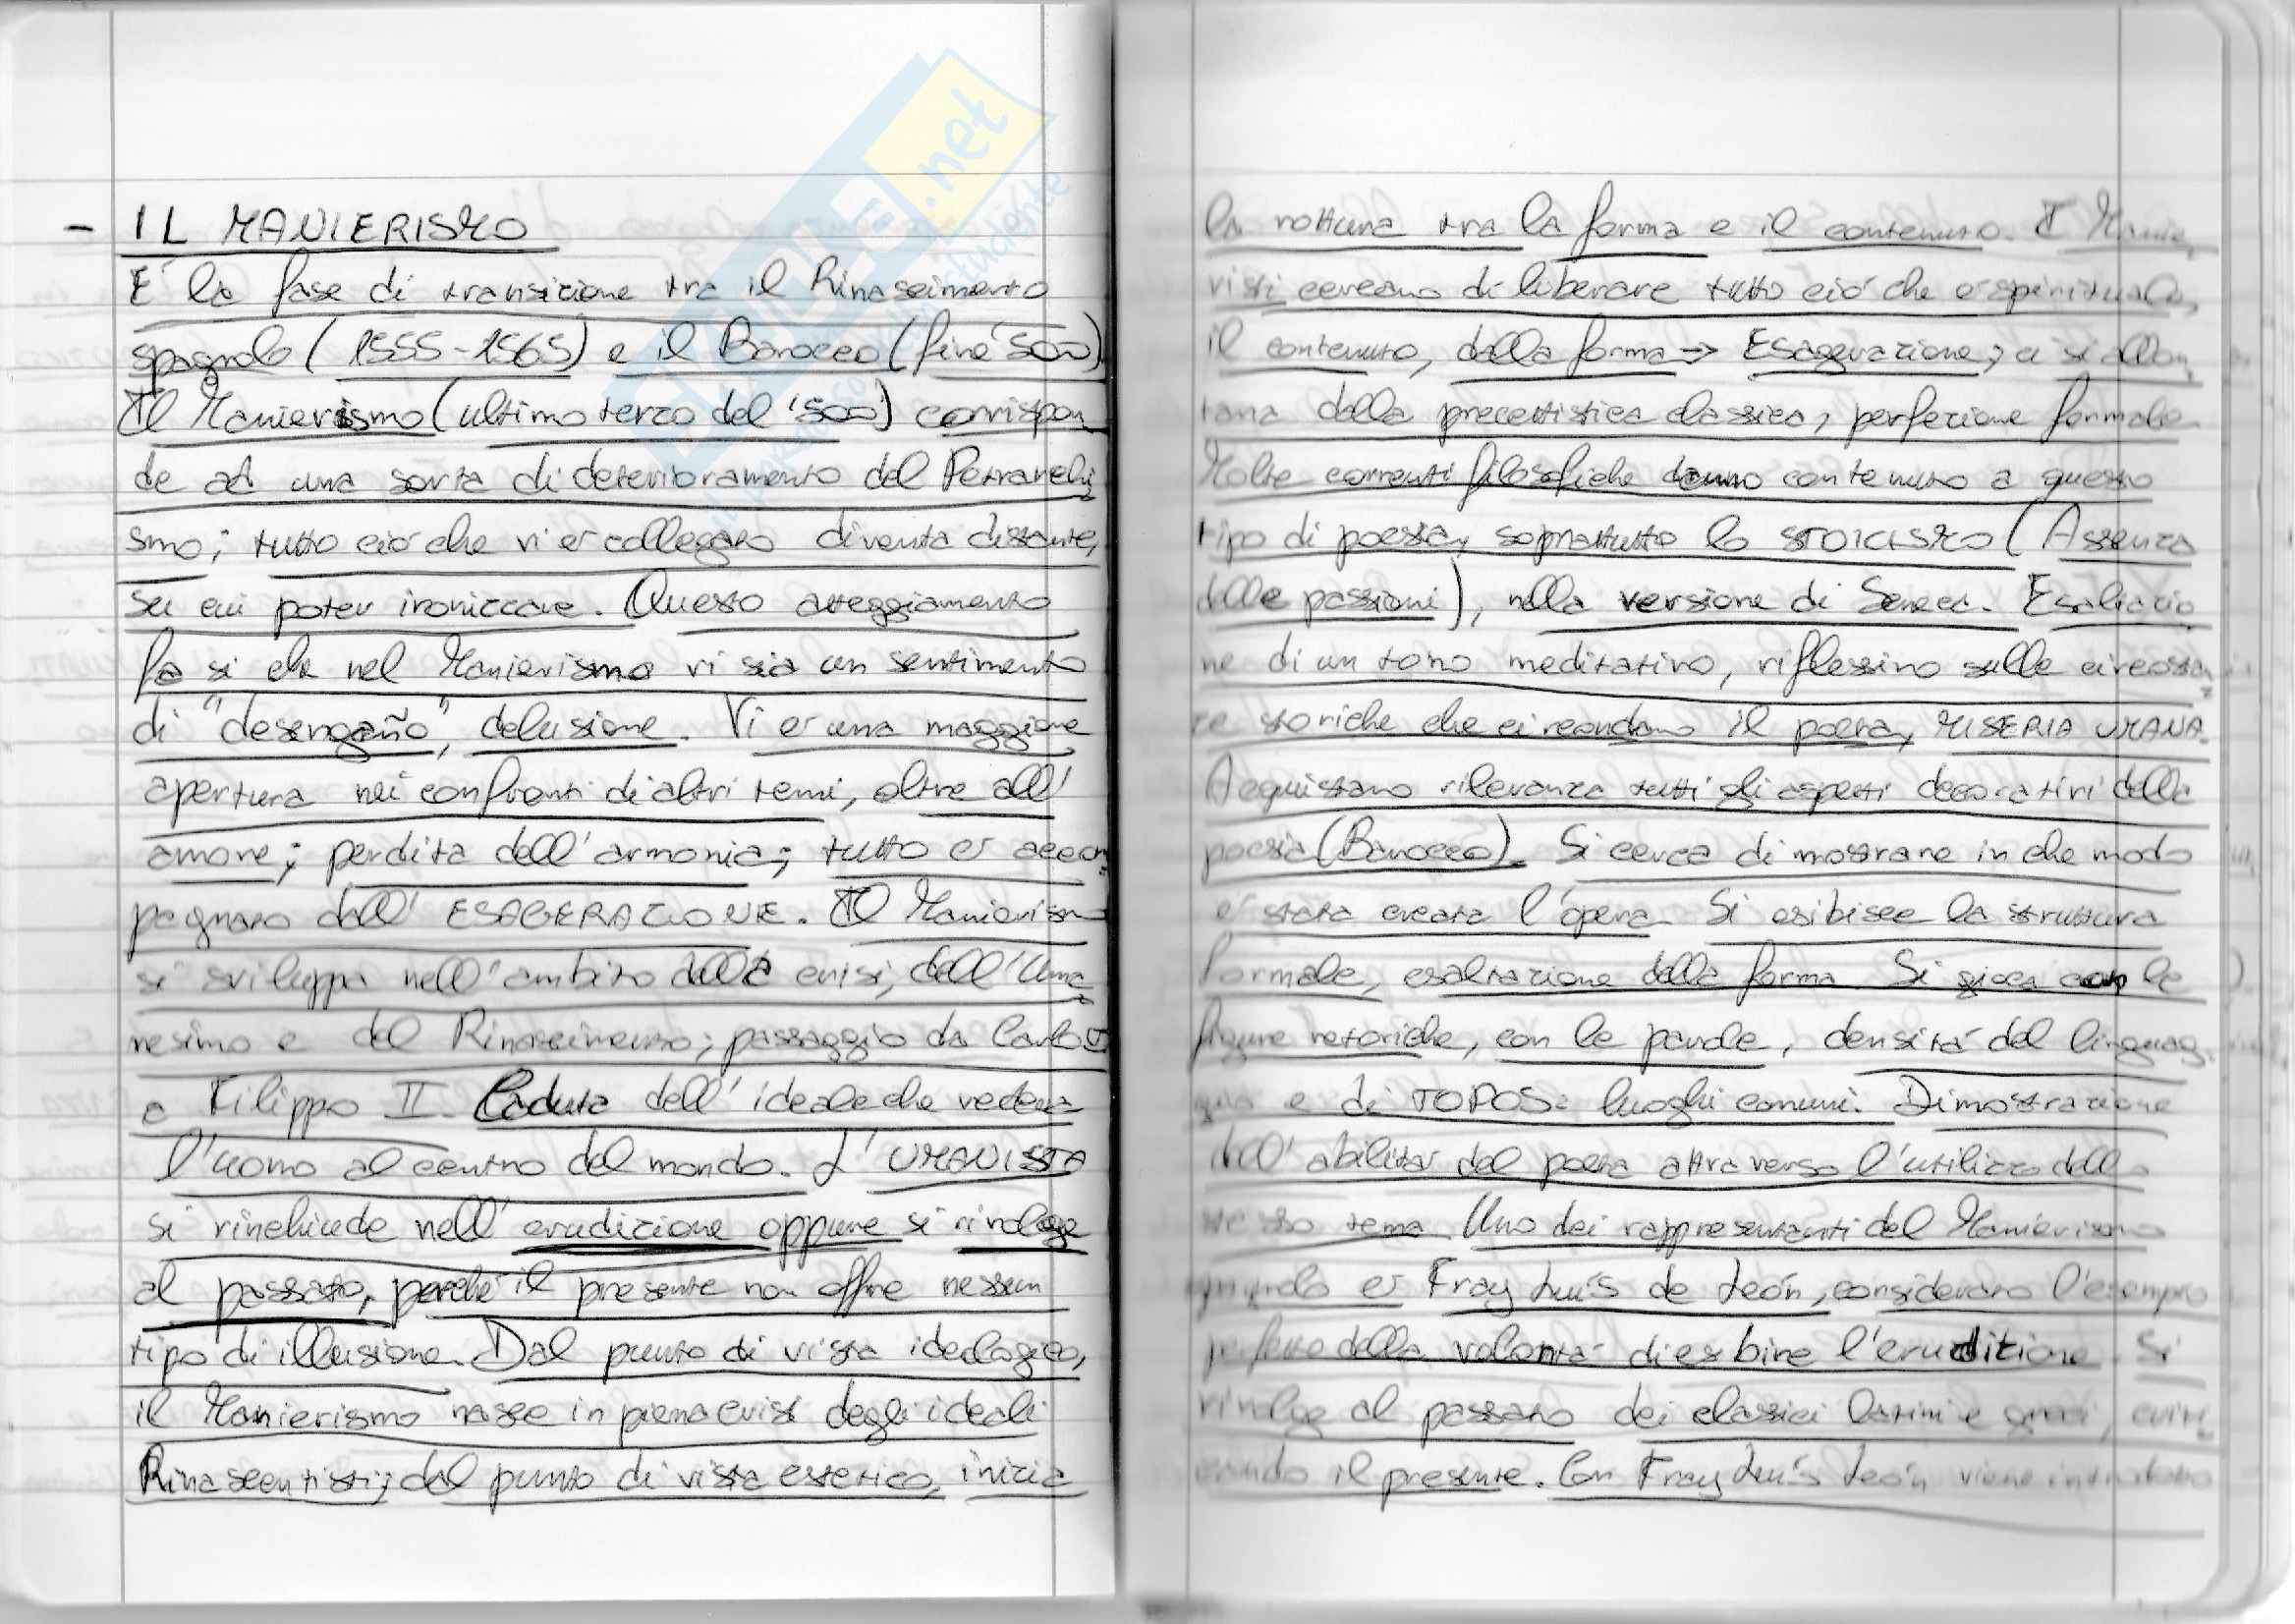 - IL MANIERISMO
É la fase di transizione tra il Rinascimento
spagnolo (1555-1565) e il Barocco (fine '500)
Il Manierismo (ultimo terzo del '500) corrispon
de ad una sorta di deterioramento del Petrarchi
smo; tutto ció che vi é collegato diventa distante,
su cui poter ironizzare. Questo atteggiamento
fa si che nel Manierismo vi sia un sentimento
di "desengaño", delusione. Vi é una maggiore
apertura nei confronti di altri temi, oltre all'
amore; perdita dell'armonia; tutto é accom
pagnato dall'ESAGERAZIONE. Il Manierism
si sviluppa nell'ambito della crisi, dell'Uma
nesimo e del Rinascimento; passaggio da Carlo V
a Filippo II. Caduta dell'ideale che vedeva
l'uomo al centro del mondo. L'UMANISTA
si rinchiude nell'erudizione oppure si rivolge
al passato, perché il presente non offre nessun
tipo di illusione. Dal punto di vista ideologico,
il Manierismo nasce in piena crisi degli ideali
Rinascentisti; dal punto di vista estetico, inizia
la rottura tra la forma e il contenuto. I Manie
risti cercano di liberare tutto ció che é spirituale,
il contenuto, dalla forma → Esagerazione; ci si allon
tana dalla precettistica classica, perfezione formale
Molte correnti filosofiche danno contenuto a questo
tipo di poesia, soprattutto lo STOICISMO (Assenza
delle passioni), nella versione di Seneca. Esaltazio
ne di un tono meditativo, riflessivo sulle circostan
ze storiche che circondano il poeta, MISERIA UMANA.
Acquistano rilevanza tutti gli aspetti decorativi della
poesia (Barocco). Si cerca di mostrare in che modo
é stata creata l'opera. Si esibisce la struttura
formale, esaltazione della forma. Si gioca con le
figure retoriche, con le parole, densitá del linguag
gio e di TOPOS: luoghi comuni. Dimostrazione
dell'abilitá del poeta attraverso l'utilizzo dello
stesso tema. Uno dei rappresentanti del Manierismo
spagnolo é Fray Luís de León, considerato l'esempio
perfetto della volontá di esibire l'erudizione. Si
rivolge al passato dei classici latini e greci, criti
cando il presente. Con Fray Luís León viene introdotto
.net